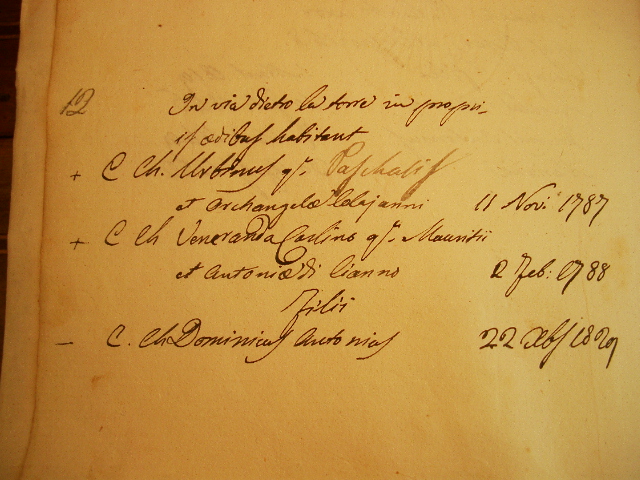 12 In via dietro la torre in propri-
is ædibus habitant
+ C Ch. Urbinus q.m Paschalis
et Archangelæ 11 Nov: 1787
+ C Ch Veneranda Carlino q.m Mauritii
et Antoniæ di Cianno 2 Feb: 1788
Filii
– C. Ch Dominicus Antonius 22 Xbs 1829